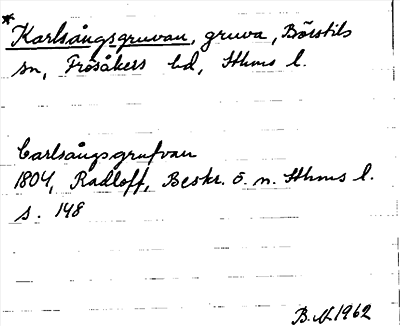 *
Karlsångsgruvan, gruva, Börstils
sn, Frösåkers hd, Sthms l.
Carlsångsgrufvan
1804, Radloff, Beskr. ö. n. Sthms l.
s. 148
B. N. 1962